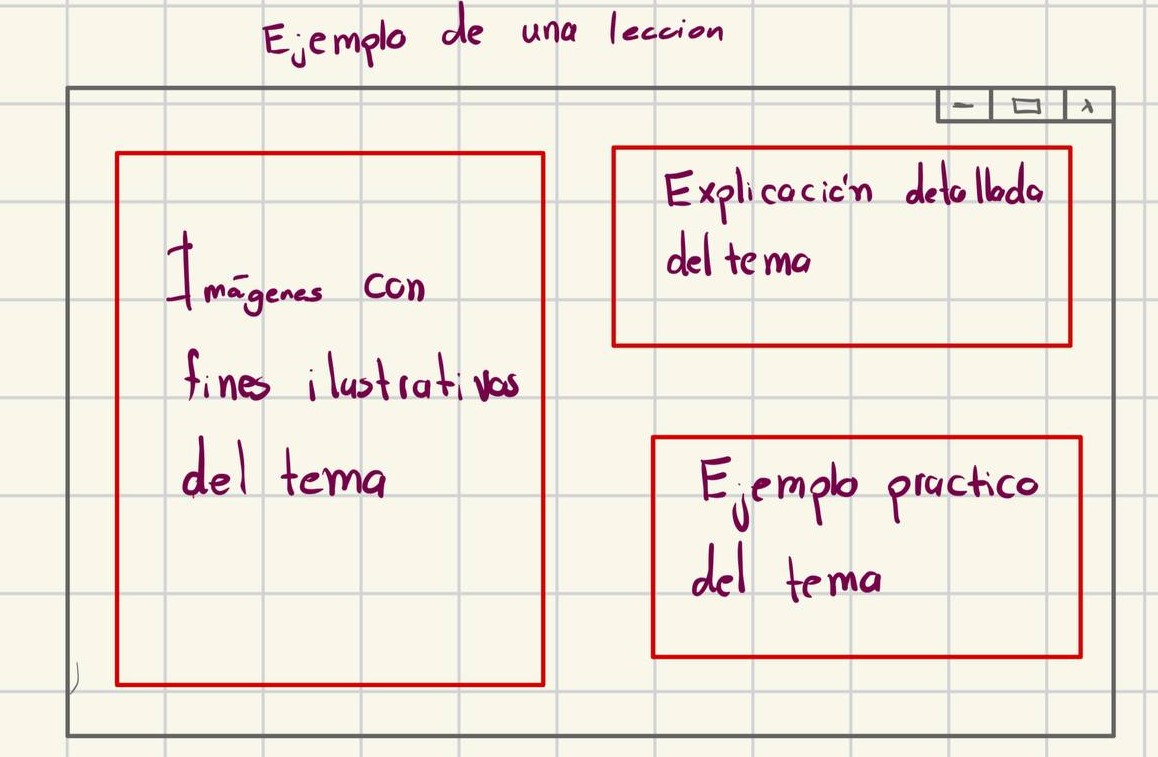 Ejemplo de una leccion
Imágenes con
fines ilustrativos
del tema
Explicación detallada
del tema
Ejemplo practico
del tema